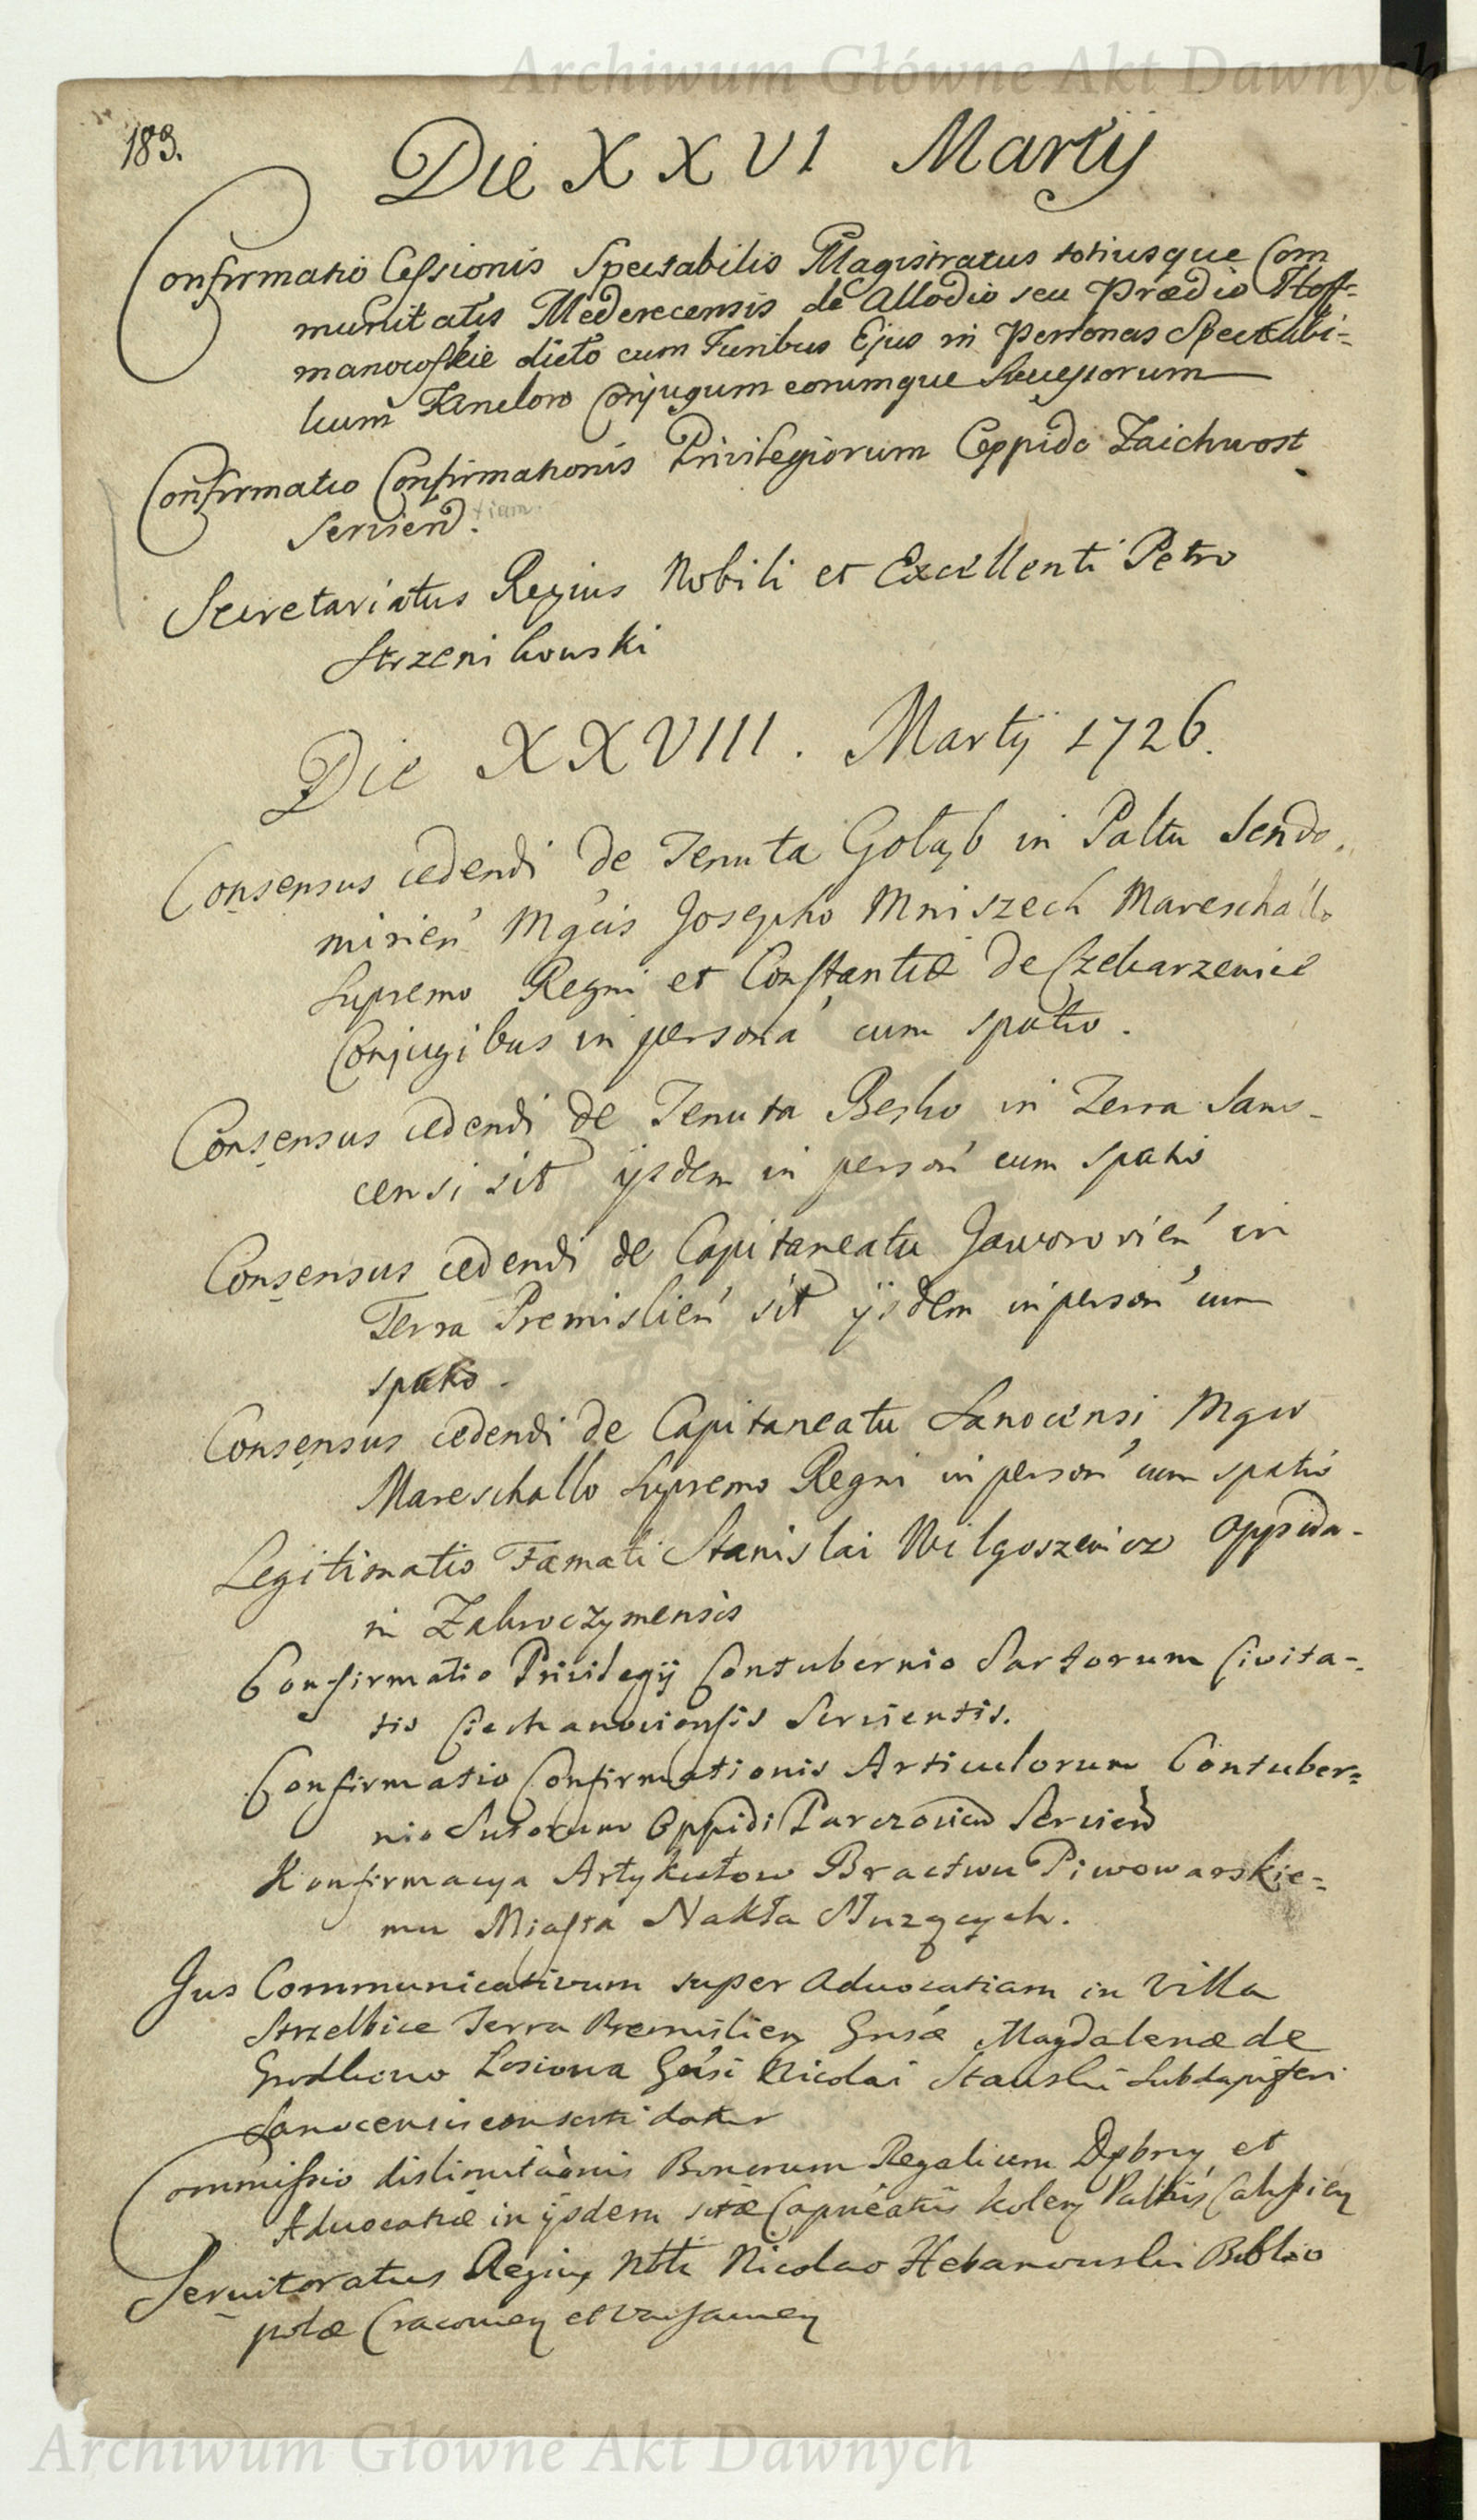 Archiwum Główne Akt Dawnych
183.
Die XXVI Martij
Confirmatio Cessionis Spectabilis Magistratus totiusque Com
munitatis Mederecensis de Allodio seu Prædio Hoff=
manowskie dicto cum Juribus Ejus in Personas Spectabi=
lium Conjugum eorumque Successorum
Confirmatio Confirmationis Privilegiorum Oppido Zaichwost
Servien.
Secretariatus Regius Nobili et Excellenti Petro
Strzeni kowski
Die XXVIII. Martij 1726.
Consensus cedendi de Tenuta Gołąb in Paltu Sendo.
mirien Mgcis Josepho Mniszech Mareschallo
Supremo Regni et Constantiæ de
Conjugibus in persona cum spatio.
Consensus cedendi de Tenuta Besko in Terra Sano-
censi sit ijsdem in person cum spatio
Consensus cedendi de Capitaneatu Jaworovien in
Terra Premislien sit ijsdem in person cum
spatio.
Consensus cedendi de Capitaneatu Sanocensi Mgco
Mareschallo Supremo Regni in person cum spatio
Legitimatio Famati Stanislai Wilgoszewicz Oppida-
ni Zakroczymensis
Confirmatio Privilegij Contubernio Sartorum Civita-
tis Ciechanoviensis Servientis.
Confirmatio Confirmationis Articulorum Contuber=
nio Sutorum Oppidi Parczovien Servien
Konfirmacya Artykułow Bractwu Piwowarskie=
mu Miasta Nakła Służących.
Jus Communicativum super Advocatiam in Villa
Strzelbice Terra Premislien Gnsæ Magdalenæ de
Losiowa Gnsi Nicolai Stauski Subdapiferi
Sanocensis consorti datur
Commissio dislimitaonis Bonorum Regalium Dębny et
Advocatiæ in ijsdem sitæ Capneatus Kolen Paltus Calisien
Servitoratus Regius Nbli Nicolao Hebanowski Biblio
polæ Cracovien et Varsavien
Archiwum Główne Akt Dawnych